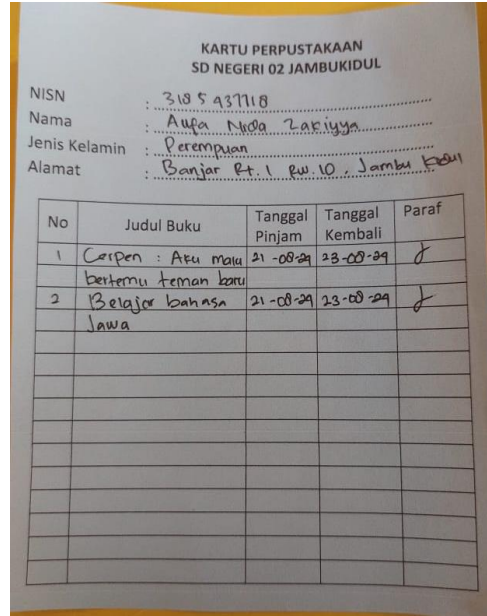 KARTU PERPUSTAKAAN
SD NEGERI 02 JAMBUKIDUL
NISN : 3185937718
Nama : Aufa Nida Zakiyya
Jenis Kelamin : Perempuan
Alamat : Banjar Rt. 1 Rw. 10, Jambu Kidul
No Judul Buku Tanggal Pinjam Tanggal Kembali Paraf
1 Cerpen : Aku malu 21-08-24 23-08-24
bertemu teman baru
2 Belajar bahasa 21-08-24 23-08-24
Jawa